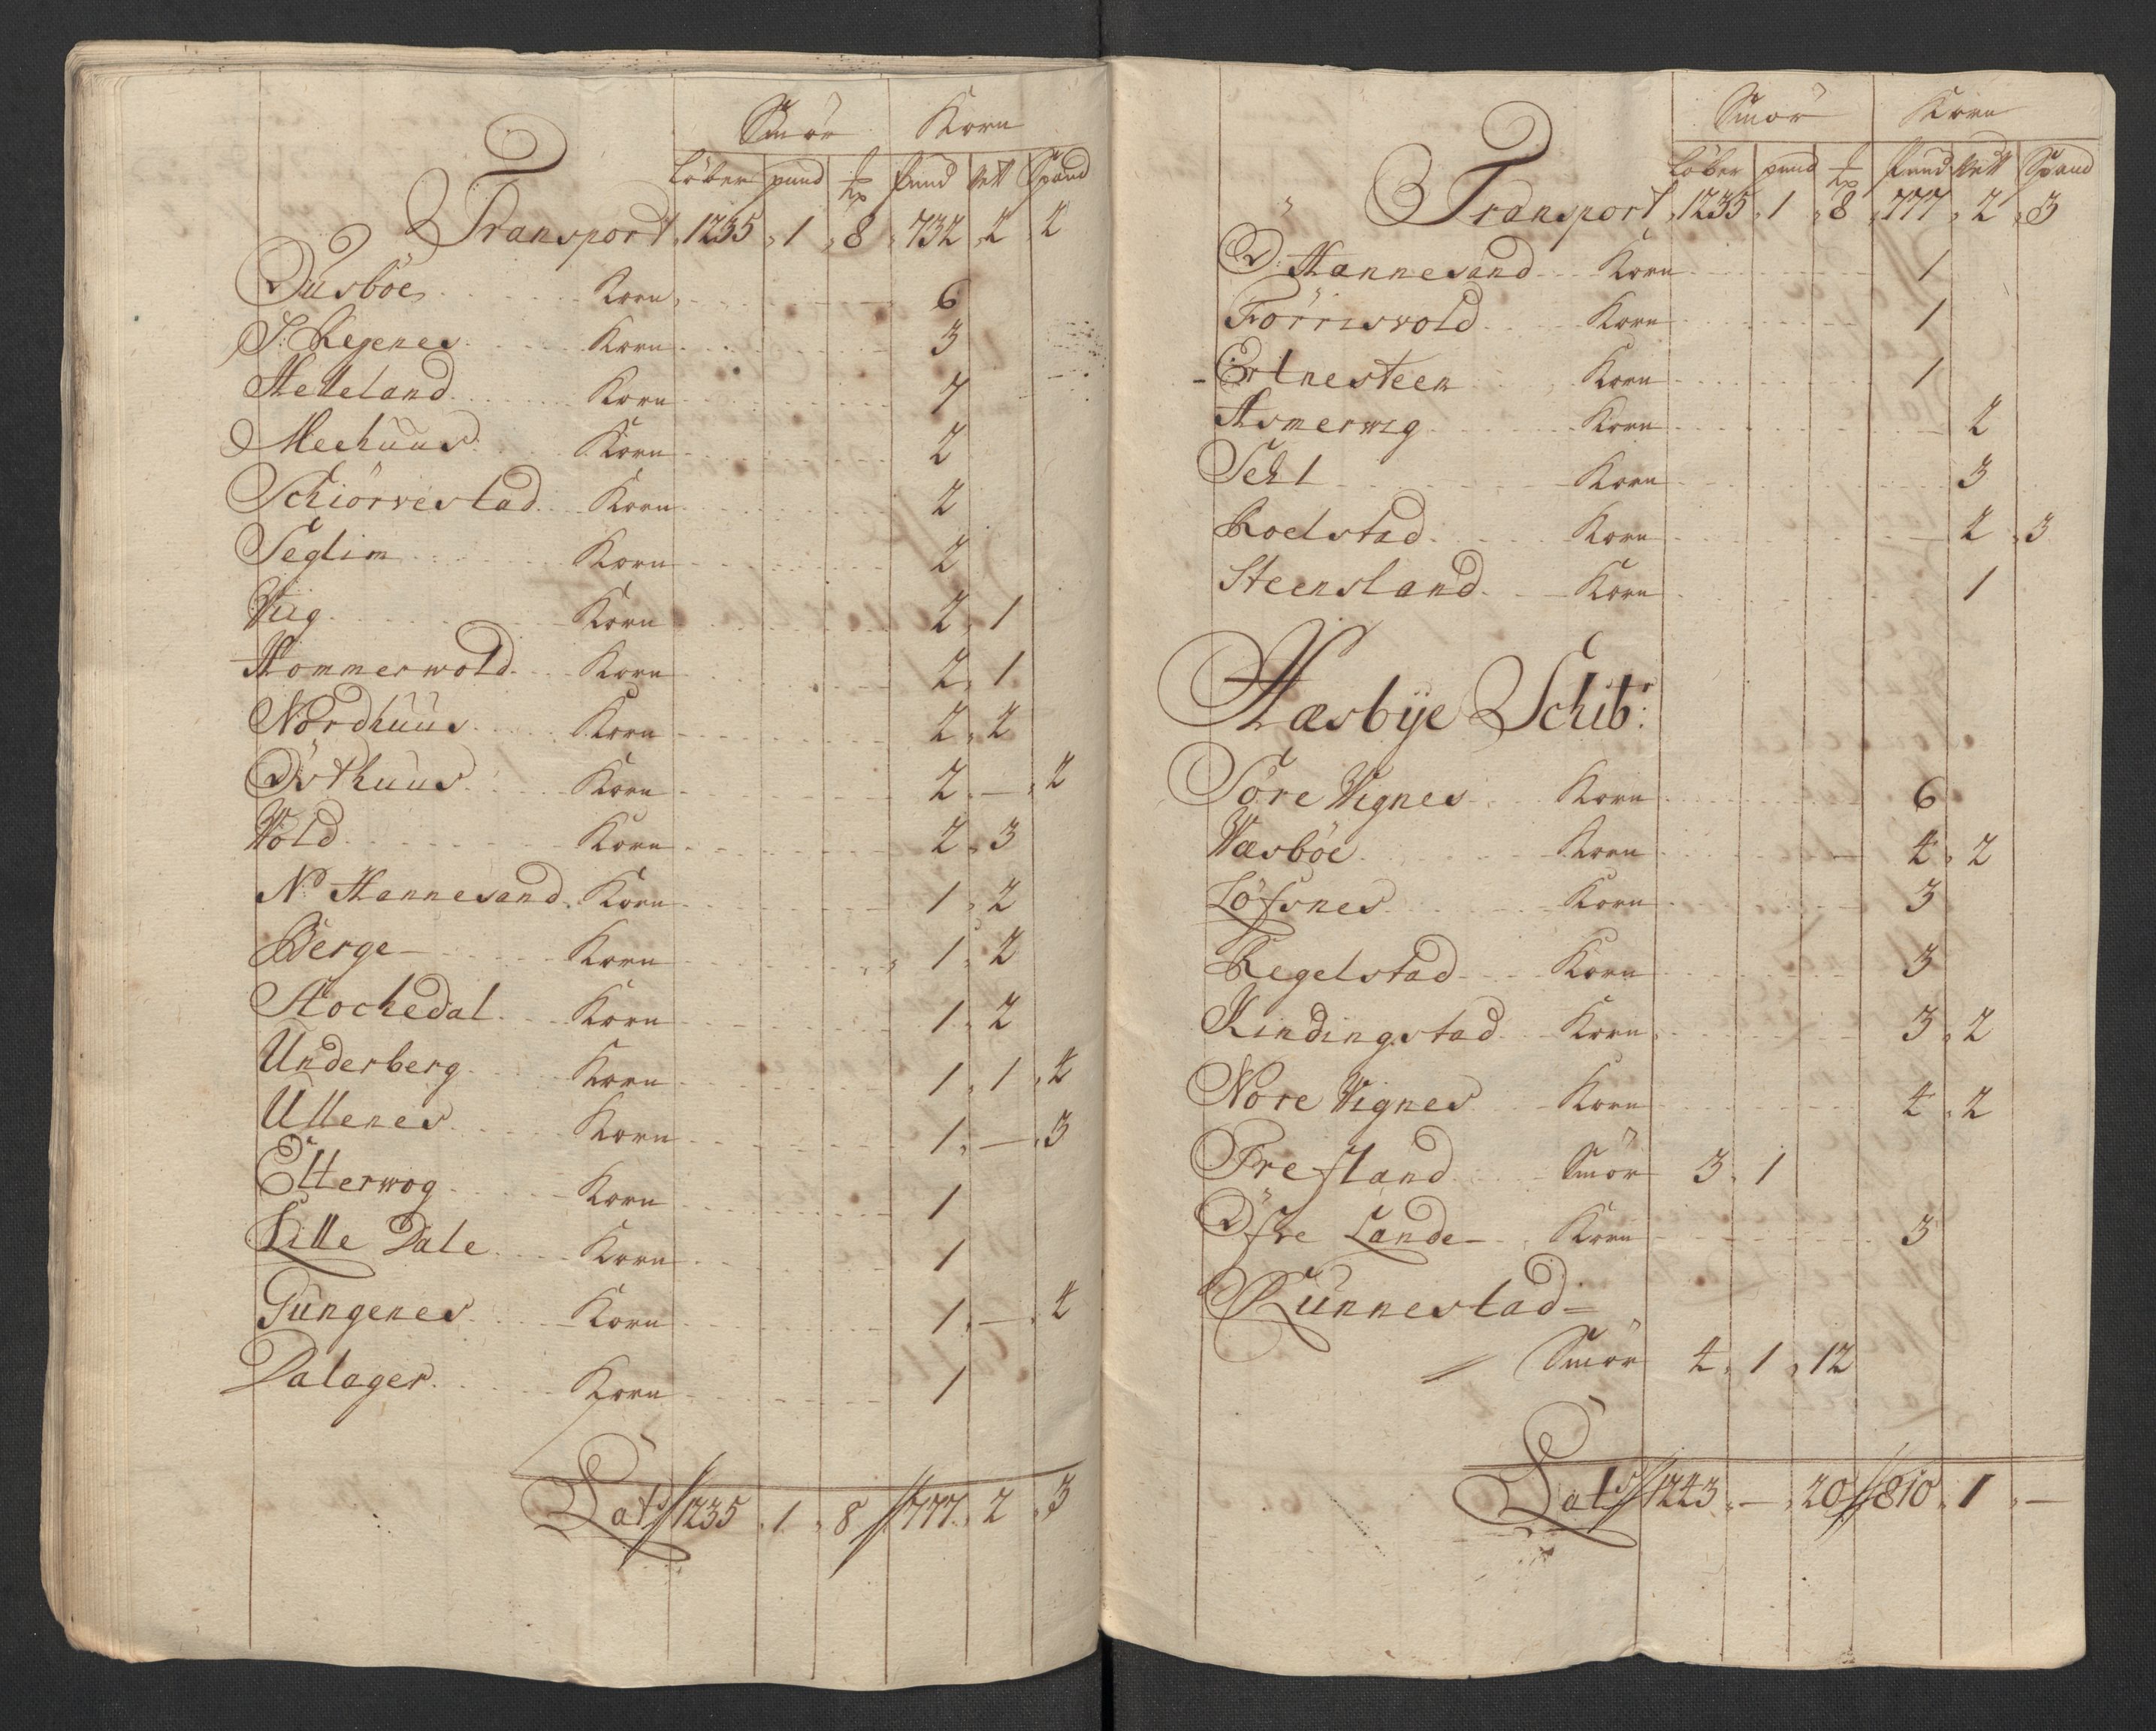 Smör Korn
Löber pund ℔ Pund Vett Spand
Transport 1235 , 1 , 8 , 732 , 2 , 2
Dusböe Korn 6
S: Regenes Korn 3
Helleland Korn 7
Meehuus Korn 2
Schiörvestad Korn 2
Seglim Korn 2
Viig Korn 2 , 1
Hommerwold Korn 2 , 1
Nordhuus Korn 2 , 2
Östhuus Korn 2 , — , 2
Wold Korn 2 , 3
N: Hannesand Korn 1 , 2
Berge Korn 1 , 2
Stochedal Korn 1 , 2
Underberg Korn 1 , 1 , 4
Ullenes Korn 1 , — , 3
Etterwog Korn 1
Lille Dale Korn 1
Tungenes Korn 1 , — , 4
Dalager Korn 1
Lats 1235 , 1 , 8 // 777 , 2 , 3
Smör Korn
Löber pund ℔ Pund Vett Spand
Transport , 1235 , 1 , 8 , 777 , 2 , 3
Ö: Hannesand Korn 1
Förrisvold Korn 1
Erlnesteen Korn 1
Asmerwig Korn 2
Sehl Korn 3
Roelstad Korn 2 , 3
Steensland Korn 1
Hasbye Schibr:
Söre Vignes Korn 6
Wasböe Korn 4 , 2
Löfsnes Korn 3
Regelstad Korn 3
Kindingstad Korn 3 , 2
Nore Vignes Korn 4 , 2
Prestland Smör 3 , 1
Öfre Lande Korn 3
Runnestad
Smör 4 , 1 , 12
Lats // 1243 , — , 20 // 810 , 1 , —